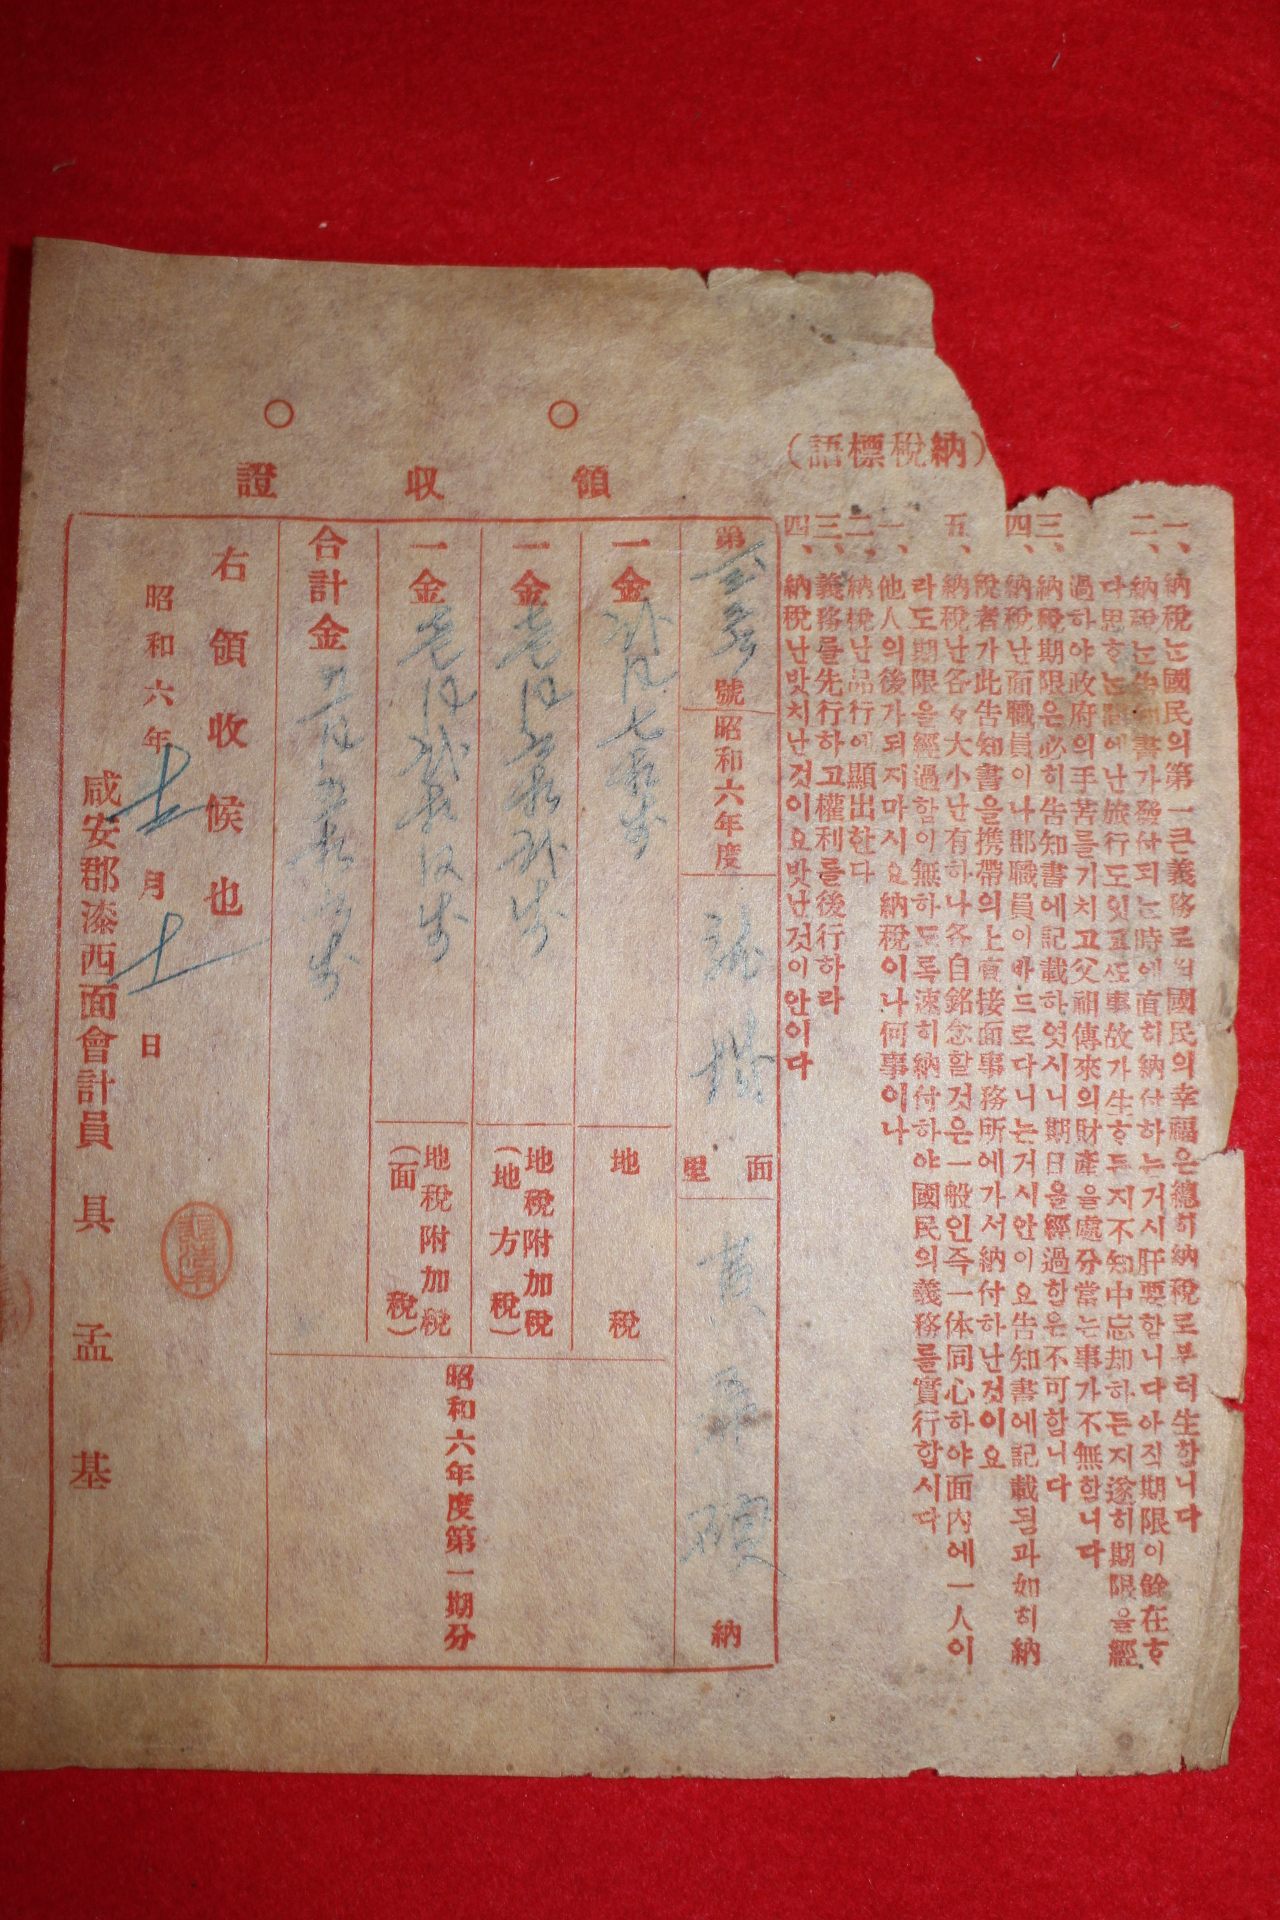 一、納稅는國民의第一큰義務로써國民의幸福은總히納稅로부터生합니다
二、納稅는告知書가發付되는時에直히納付하는거시肝要합니다아직期限이餘在ᄒ
다思ᄒ는間에난旅行도잇고또事故가生ᄒ든지不知中忘却하든지遂히期限을經
過하야政府의手苦를기치고父祖傳來의財產을處分當는事가不無합니다
三、納稅期限은必히告知書에記載하엿시니期日을經過함은不可합니다
四、納稅난面職員이나郡職員이바드로다니는거시안이요告知書에記載됨과如히納
稅者가此告知書을携帶의上直接面事務所에가서納付하난것이요
五、納稅난各々大小난有하나各自銘念할것은一般인즉一体同心하야面內에一人이
라도期限을經過함이無하도록速히納付하야國民의義務를實行합시다
(納稅標語)
一、他人의後가되지마시요納稅이나何事이나
二、納稅난品行에顯出한다
三、義務를先行하고權利를後行하라
四、納稅난맛치난것이요밧난것이안이다
領收證
第 號 昭和六年度 面 里 納
一金 地稅
一金 地稅附加稅(地方稅)
一金 地稅附加稅(面稅)
合計金
昭和六年度第一期分
右領收候也
昭和六年 月 日
咸安郡漆西面會計員 具孟基